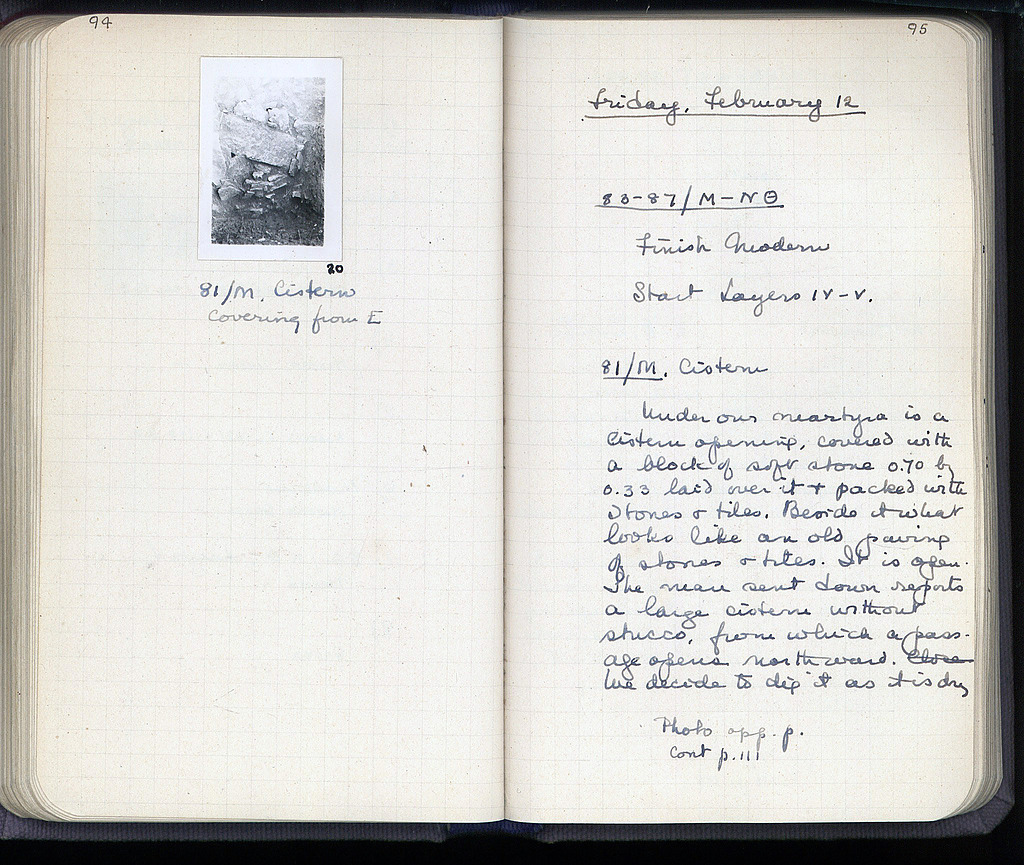 94
20
81/M. Cistern
Covering from E
95
Friday, February 12
83-87/M-NΘ
Finish Modern
Start Layers IV-V.
81/M. Cistern
Under our martyra is a
cistern opening, covered with
a block of soft stone 0.70 by
0.33 laid over it + packed with
stones & tiles. Beside it what
looks like an old paving
of stones & tiles. It is open.
The man sent down reports
a large cistern without
stucco, from which a pass-
age opens northward. Close
We decide to dig it as it is dry
Photo opp. p.
Cont p. 111